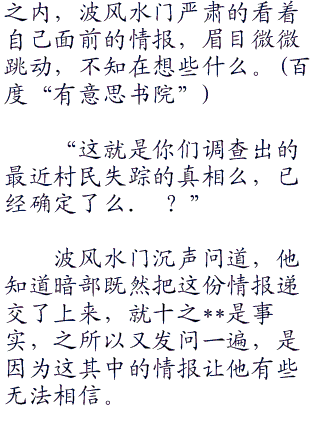 之内，波风水门严肃的看着
自己面前的情报，眉目微微
跳动，不知在想些什么。(百
度“有意思书院”)
“这就是你们调查出的
最近村民失踪的真相么，已
经确定了么． ？”
波风水门沉声问道，他
知道暗部既然把这份情报递
交了上来，就十之**是事
实，之所以又发问一遍，是
因为这其中的情报让他有些
无法相信。